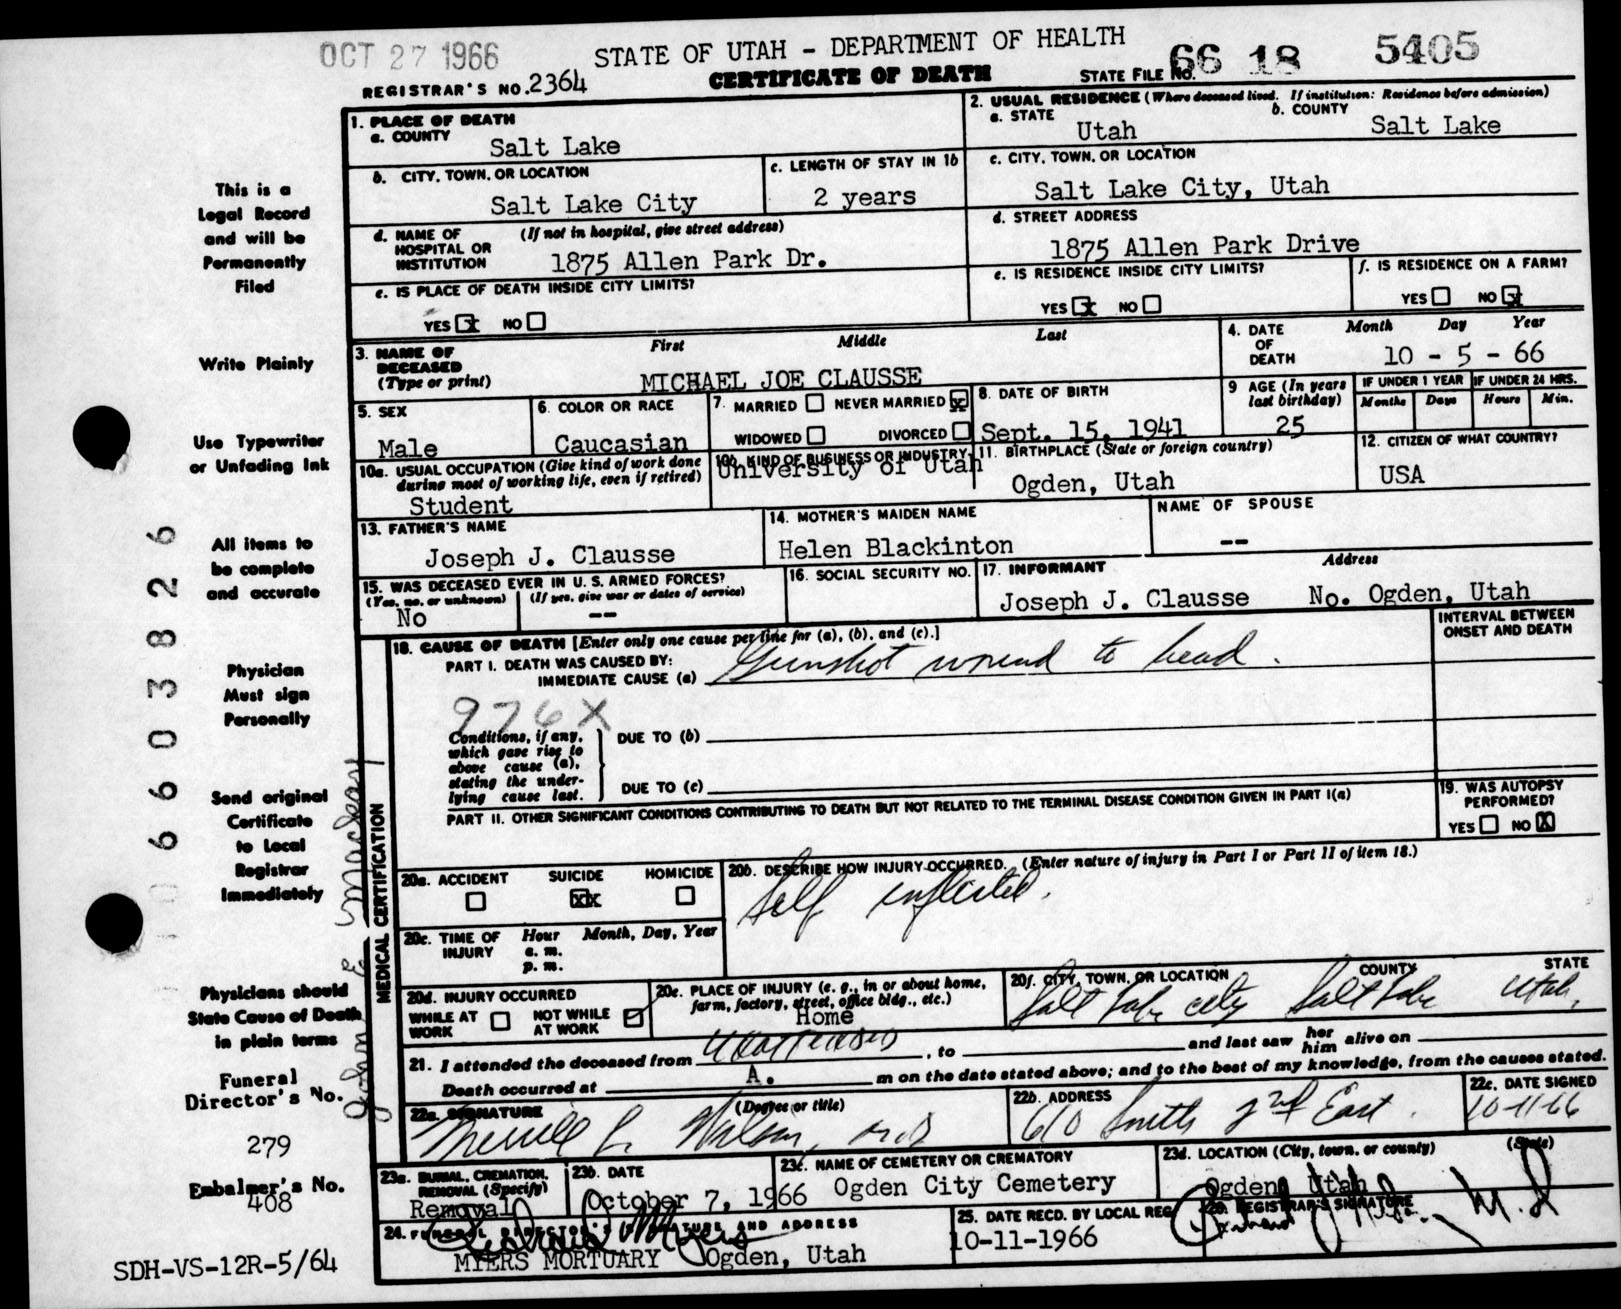 OCT 27 1966
STATE OF UTAH - DEPARTMENT OF HEALTH
CERTIFICATE OF DEATH
REGISTRAR'S NO. 2364
STATE FILE NO. 66 18 5405
1. PLACE OF DEATH
a. COUNTY
Salt Lake
2. USUAL RESIDENCE (Where deceased lived. If institution: Residence before admission)
a. STATE
Utah
b. COUNTY
Salt Lake
b. CITY, TOWN, OR LOCATION
Salt Lake City
c. LENGTH OF STAY IN 1b
2 years
c. CITY, TOWN, OR LOCATION
Salt Lake City, Utah
d. NAME OF HOSPITAL OR INSTITUTION
(If not in hospital, give street address)
1875 Allen Park Dr.
d. STREET ADDRESS
1875 Allen Park Drive
e. IS PLACE OF DEATH INSIDE CITY LIMITS?
YES x NO
e. IS RESIDENCE INSIDE CITY LIMITS?
YES x NO
f. IS RESIDENCE ON A FARM?
YES NO x
3. NAME OF DECEASED
(Type or print)
First Middle Last
MICHAEL JOE CLAUSSE
4. DATE OF DEATH
Month Day Year
10 - 5 - 66
5. SEX
Male
6. COLOR OR RACE
Caucasian
7. MARRIED NEVER MARRIED x
WIDOWED DIVORCED
8. DATE OF BIRTH
Sept. 15, 1941
9 AGE (In years last birthday)
25
IF UNDER 1 YEAR
Months Days
IF UNDER 24 HRS.
Hours Min.
10a. USUAL OCCUPATION (Give kind of work done during most of working life, even if retired)
Student
10b. KIND OF BUSINESS OR INDUSTRY
University of Utah
11. BIRTHPLACE (State or foreign country)
Ogden, Utah
12. CITIZEN OF WHAT COUNTRY?
USA
13. FATHER'S NAME
Joseph J. Clausse
14. MOTHER'S MAIDEN NAME
Helen Blackinton
NAME OF SPOUSE
--
15. WAS DECEASED EVER IN U. S. ARMED FORCES?
(Yes, no, or unknown) (If yes, give war or dates of service)
No --
16. SOCIAL SECURITY NO.
17. INFORMANT Address
Joseph J. Clausse No. Ogden, Utah
18. CAUSE OF DEATH [Enter only one cause per line for (a), (b), and (c).]
INTERVAL BETWEEN ONSET AND DEATH
PART I. DEATH WAS CAUSED BY:
IMMEDIATE CAUSE (a) Gunshot wound to head.
976X
Conditions, if any, which gave rise to above cause (a), stating the underlying cause last.
DUE TO (b)
DUE TO (c)
PART II. OTHER SIGNIFICANT CONDITIONS CONTRIBUTING TO DEATH BUT NOT RELATED TO THE TERMINAL DISEASE CONDITION GIVEN IN PART I(a)
19. WAS AUTOPSY PERFORMED?
YES NO X
MEDICAL CERTIFICATION
20a. ACCIDENT SUICIDE HOMICIDE
xx
20b. DESCRIBE HOW INJURY OCCURRED. (Enter nature of injury in Part I or Part II of item 18.)
Self inflicted.
20c. TIME OF INJURY
Hour Month, Day, Year
a. m.
p. m.
20d. INJURY OCCURRED
WHILE AT WORK NOT WHILE AT WORK
20e. PLACE OF INJURY (e. g., in or about home, farm, factory, street, office bldg., etc.)
Home
20f. CITY, TOWN, OR LOCATION COUNTY STATE
Salt Lake City Salt Lake Utah,
21. I attended the deceased from Unattended, to and last saw her him alive on
Death occurred at A. m on the date stated above; and to the best of my knowledge, from the causes stated.
22a. SIGNATURE (Degree or title)
Merrill L. Wilson, M.D
22b. ADDRESS
610 South 2nd East.
22c. DATE SIGNED
10-11-66
23a. BURIAL, CREMATION, REMOVAL (Specify)
Removal
23b. DATE
October 7, 1966
23c. NAME OF CEMETERY OR CREMATORY
Ogden City Cemetery
23d. LOCATION (City, town, or county) (State)
Ogden, Utah
24. FUNERAL DIRECTOR'S SIGNATURE AND ADDRESS
MYERS MORTUARY Ogden, Utah
25. DATE RECD. BY LOCAL REG.
10-11-1966
26. REGISTRAR'S SIGNATURE
M.D
This is a
Legal Record
and will be
Permanently
Filed
Write Plainly
Use Typewriter
or Unfading Ink
All items to
be complete
and accurate
Physician
Must sign
Personally
Send original
Certificate
to Local
Registrar
Immediately
Physicians should
State Cause of Death
in plain terms
Funeral
Director's No.
279
Embalmer's No.
408
SDH-VS-12R-5/64
6603826
John E Mackay